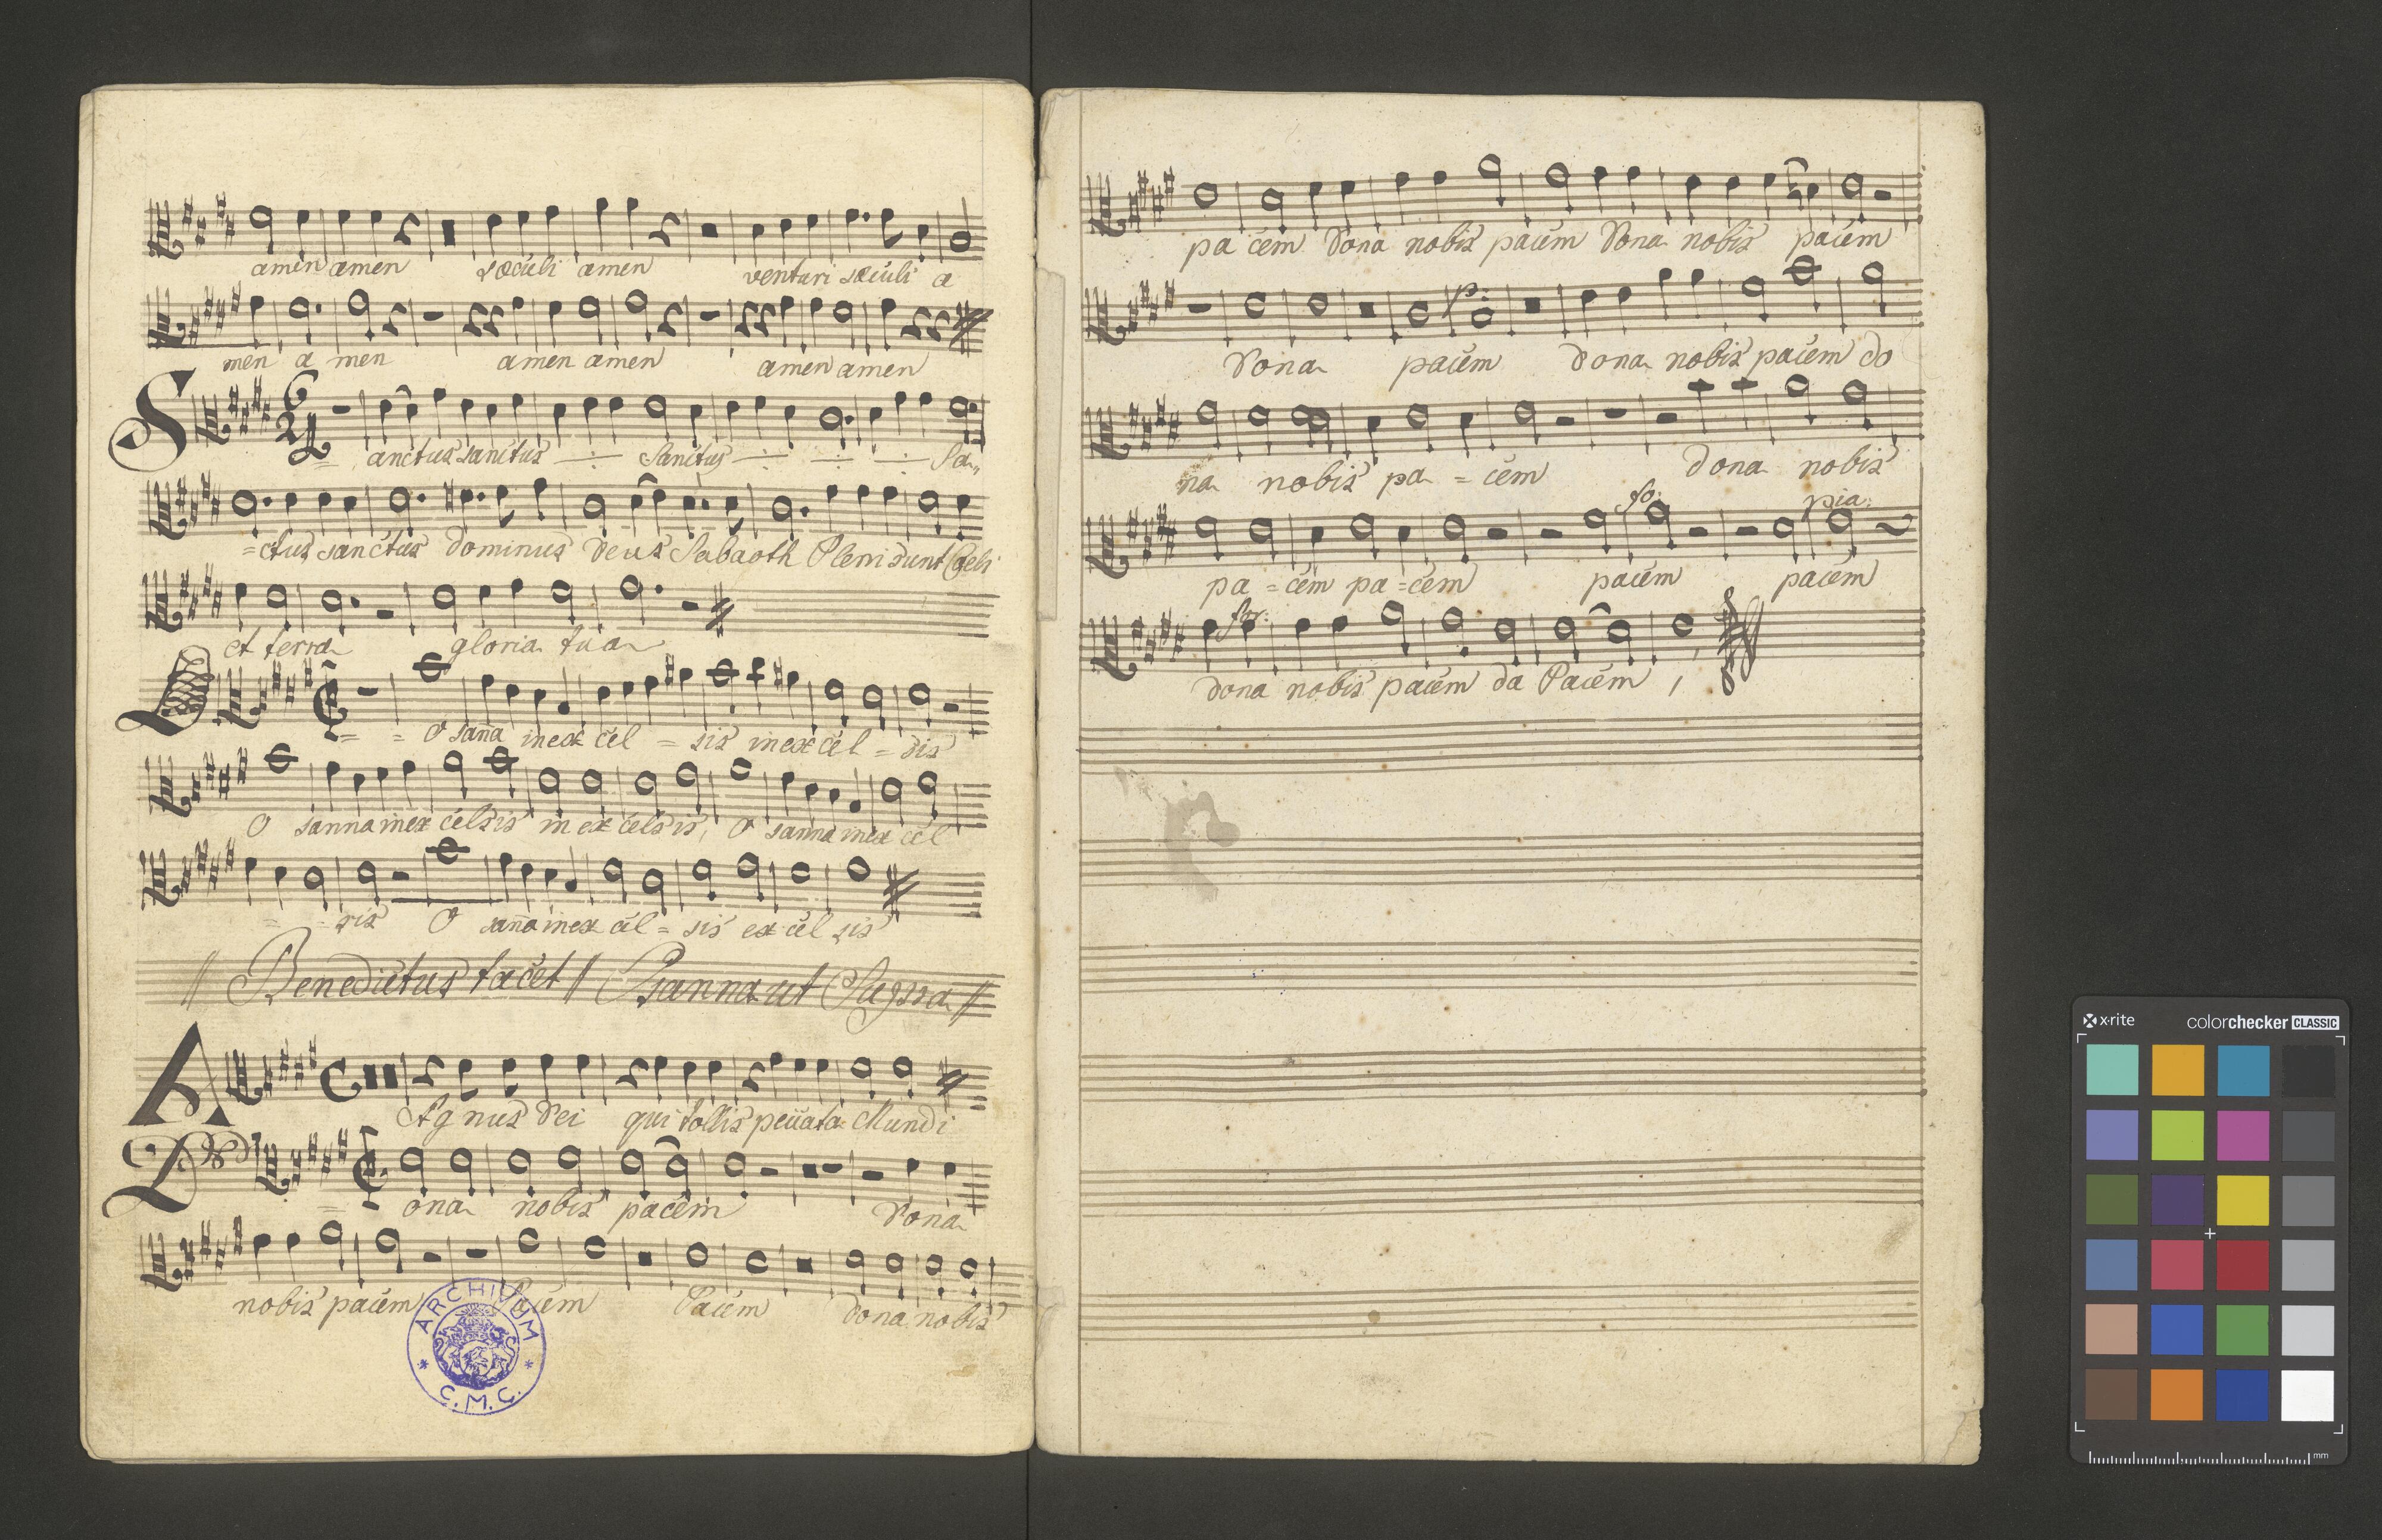 amen amen sæculi amen venturi sæculi a
men a men amen amen amen amen
S = anctus sanctus Sanctus Sa,,
=ctus sanctus dominus deus Sabaoth Pleni sunt Coeli
et terra gloria tua
O = = O sana in ex cel = sis in ex cel = sis
O sanna in ex celsis in ex celsis, O sanna in ex cel
= = sis O sana in ex cel = sis ex cel sis
// Benedictus tacet // Osanna ut Supra //
A
Agnus Dei qui tollis peccata Mundi
D = ona nobis pacem Dona
nobis pacem Pacem Pacem dona nobis
ARCHIVUM * C.M.C. *
pa cem Dona nobis pacem Dona nobis pacem
p:
Dona pacem dona nobis pacem do
na nobis pa = cem dona nobis
fo: pia:
pa = cem pa =cem pacem pacem
for:
dona nobis pacem da Pacem,
x·rite colorchecker CLASSIC
mm